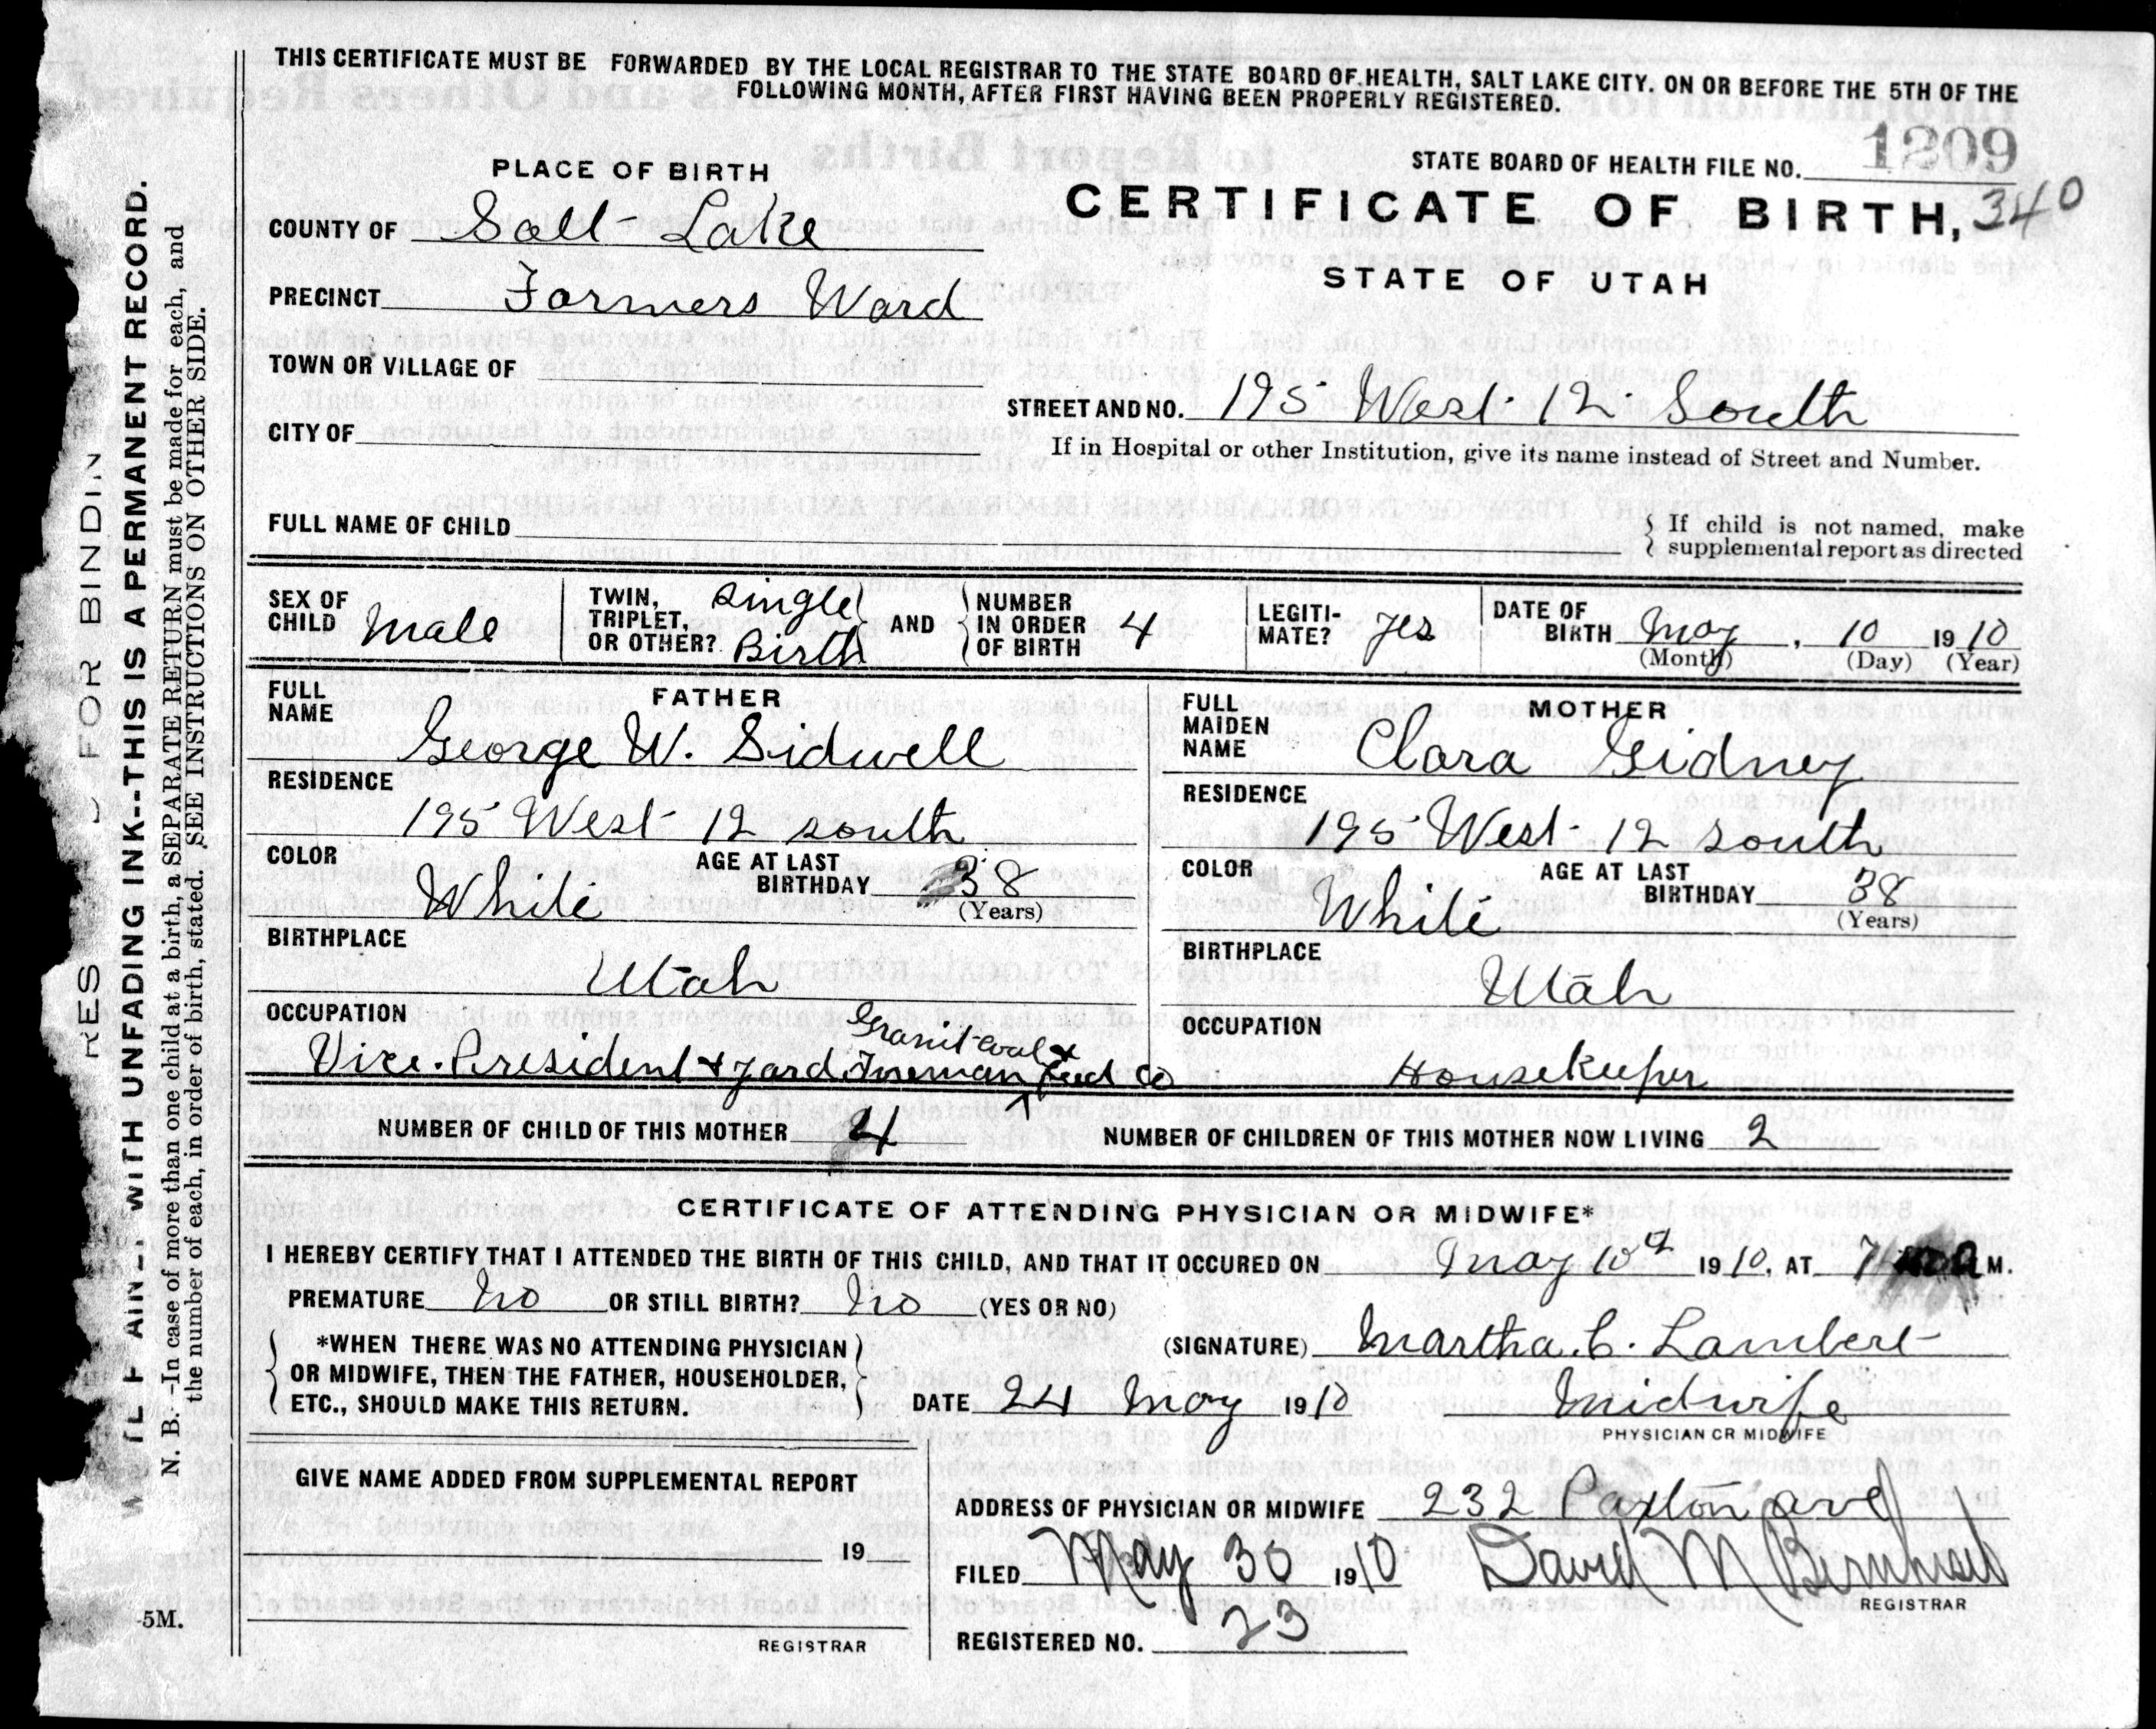 THIS CERTIFICATE MUST BE FORWARDED BY THE LOCAL REGISTRAR TO THE STATE BOARD OF HEALTH, SALT LAKE CITY. ON OR BEFORE THE 5TH OF THE
FOLLOWING MONTH, AFTER FIRST HAVING BEEN PROPERLY REGISTERED.
STATE BOARD OF HEALTH FILE NO. 1209
340
CERTIFICATE OF BIRTH,
STATE OF UTAH
PLACE OF BIRTH
COUNTY OF Salt Lake
PRECINCT Farmers Ward
TOWN OR VILLAGE OF
CITY OF
STREET AND NO. 195 West 12 South
If in Hospital or other Institution, give its name instead of Street and Number.
FULL NAME OF CHILD
If child is not named, make
supplemental report as directed
SEX OF CHILD Male
TWIN, TRIPLET, OR OTHER? Single Birth
AND
NUMBER IN ORDER OF BIRTH 4
LEGITI-MATE? Yes
DATE OF BIRTH May, 10 1910
(Month) (Day) (Year)
FATHER
FULL NAME George W. Sidwell
RESIDENCE
195 West 12 South
COLOR White
AGE AT LAST BIRTHDAY 38
(Years)
BIRTHPLACE
Utah
OCCUPATION
Granit Coal &
Vice. President & Yard Foreman Feed Co
MOTHER
FULL MAIDEN NAME Clara Gidney
RESIDENCE
195 West 12 South
COLOR White
AGE AT LAST BIRTHDAY 38
(Years)
BIRTHPLACE
Utah
OCCUPATION
Housekeeper
NUMBER OF CHILD OF THIS MOTHER 4
NUMBER OF CHILDREN OF THIS MOTHER NOW LIVING 2
CERTIFICATE OF ATTENDING PHYSICIAN OR MIDWIFE*
I HEREBY CERTIFY THAT I ATTENDED THE BIRTH OF THIS CHILD, AND THAT IT OCCURED ON May 10 1910, AT 7 A M.
PREMATURE No OR STILL BIRTH? No (YES OR NO)
*WHEN THERE WAS NO ATTENDING PHYSICIAN
OR MIDWIFE, THEN THE FATHER, HOUSEHOLDER,
ETC., SHOULD MAKE THIS RETURN.
(SIGNATURE) Martha C. Lambert
DATE 24 May 1910
Midwife
PHYSICIAN OR MIDWIFE
GIVE NAME ADDED FROM SUPPLEMENTAL REPORT
19
REGISTRAR
ADDRESS OF PHYSICIAN OR MIDWIFE 232 Paxton ave
FILED May 30 1910
David M
REGISTRAR
REGISTERED NO. 23
5M.
RES FOR BINDIN
WITH UNFADING INK--THIS IS A PERMANENT RECORD.
N. B.-In case of more than one child at a birth, a SEPARATE RETURN must be made for each, and
the number of each, in order of birth, stated. SEE INSTRUCTIONS ON OTHER SIDE.